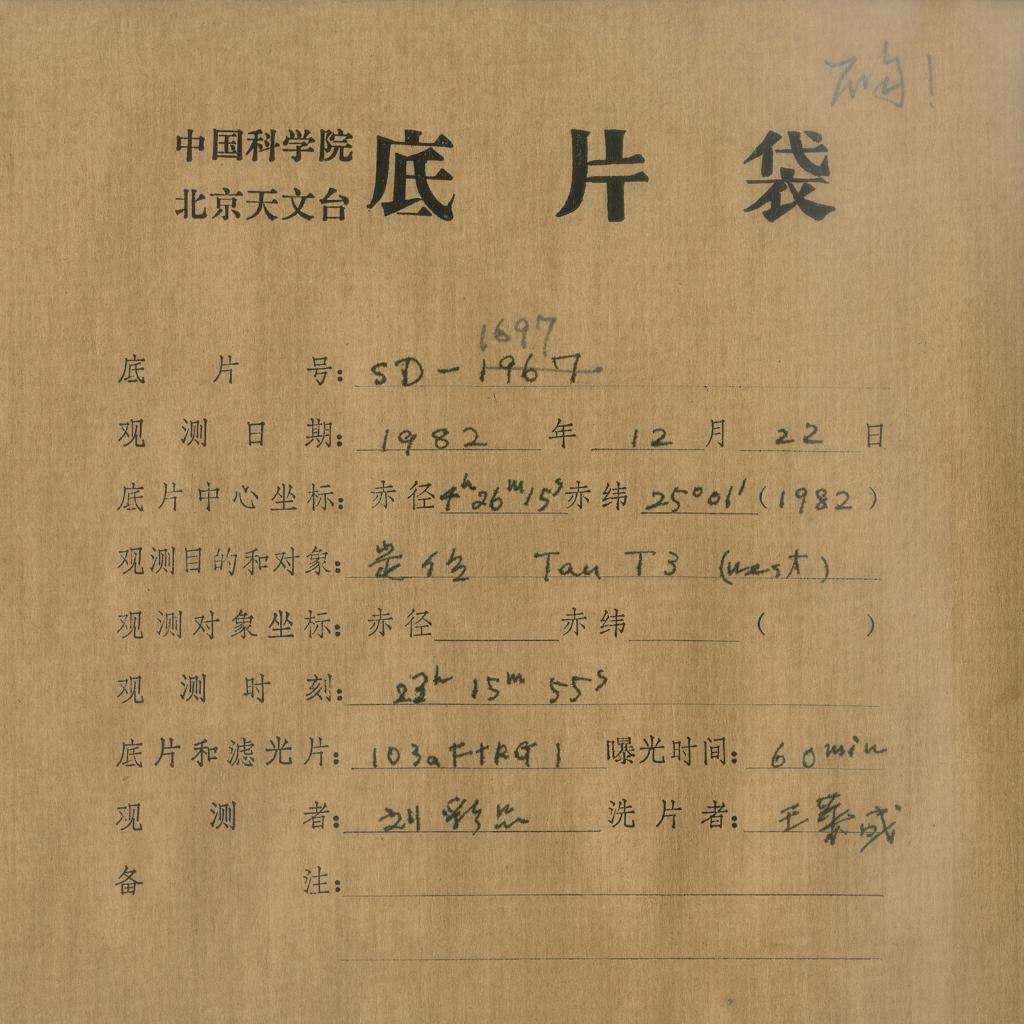 确!
中国科学院
北京天文台
底片袋
1697
底片号: SD-1967
观测日期: 1982年12月22日
底片中心坐标: 赤径4h26m15s赤纬25°01′(1982)
观测目的和对象: Tau T3 (west)
观测对象坐标: 赤径 赤纬 ( )
观测时刻: 23h 15m 55s
底片和滤光片: 103aF+RG1 曝光时间: 60min
观测者: 刘彩品 洗片者: 王泰成
备注: